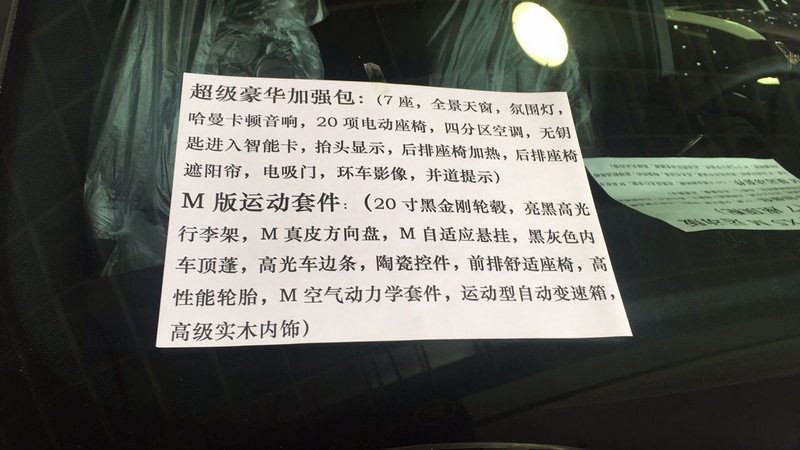 超级豪华加强包：（7 座，全景天窗，氛围灯，
哈曼卡顿音响，20 项电动座椅，四分区空调，无钥
匙进入智能卡，抬头显示，后排座椅加热，后排座椅
遮阳帘，电吸门，环车影像，并道提示）
M 版运动套件：（20 寸黑金刚轮毂，亮黑高光
行李架，M 真皮方向盘，M 自适应悬挂，黑灰色内
车顶蓬，高光车边条，陶瓷控件，前排舒适座椅，高
性能轮胎，M 空气动力学套件，运动型自动变速箱，
高级实木内饰）